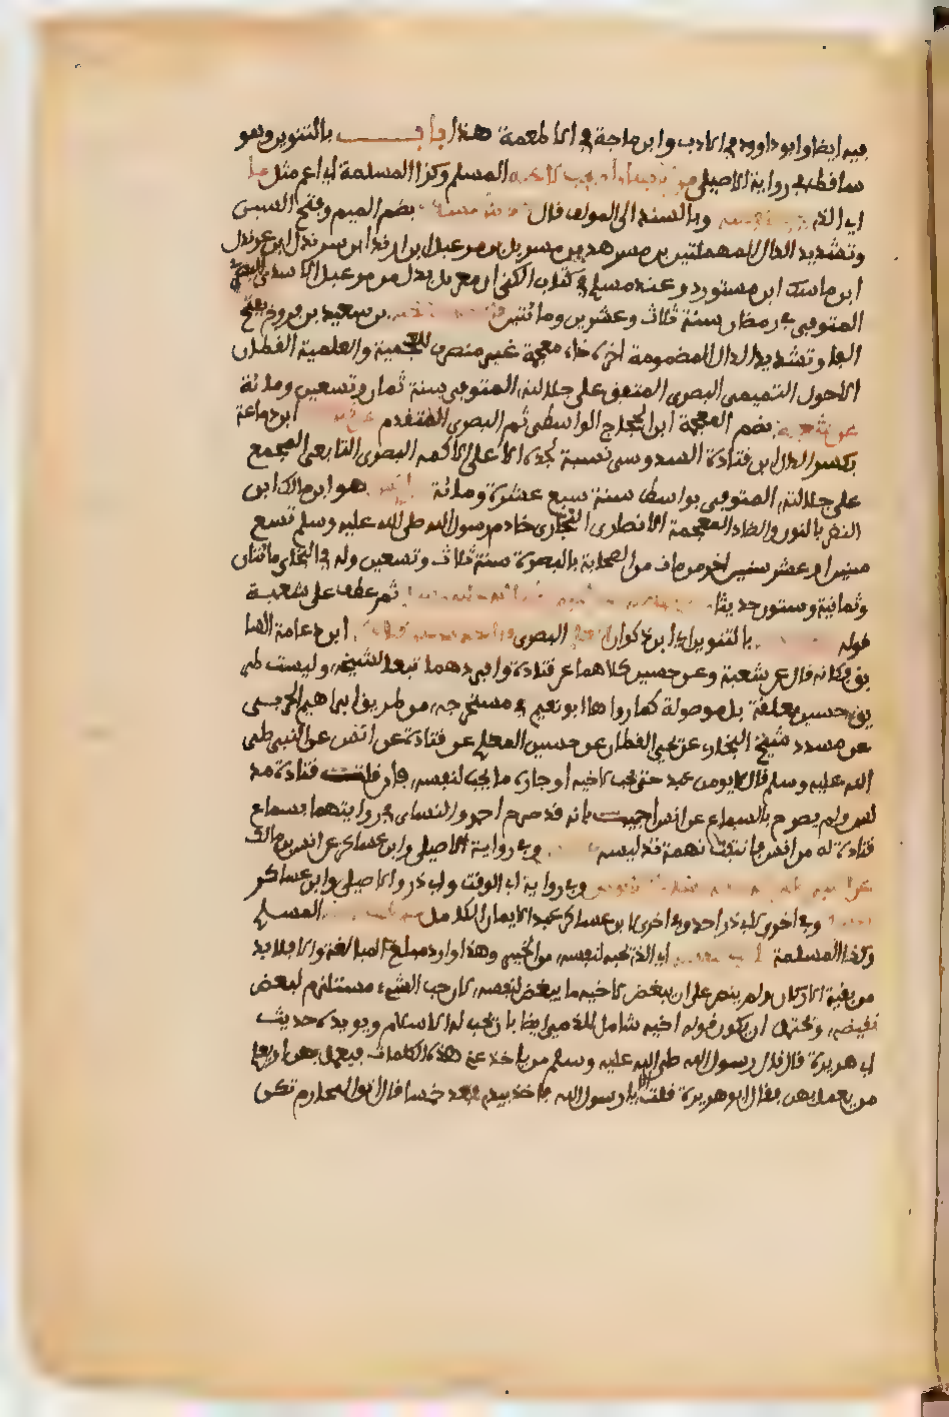 فيه ايضا وابو داوود في الادب وابن ماجة في الاطعمة هذا باب بالتنوين وهو
ساقط في رواية الاصيلي من الايمان ان يحب لاخيه المسلم وكذا المسلمة اي اعم مثل ما
اي الذي يحب لنفسه وبالسند الى المولف قال حدثنا مسدد بضم الميم وفتح السين
وتشديد الدال المهملتين بن مسرهد بن مسربل بن مرعبل ابن ارندا ابن سرندل ابن عرندل
ابن ماسك ابن مستورد وعند مسلم في كتاب الكنى ابن مغربل بدل من مرعبل الاسدي البصري
المتوفى في رمضان سنة ثلاث وعشرين ومائتين بن سعيد بن فروخ بفتح
الفا وتشديد الدال المضمومة اخره خاء معجمة غير منصرف للعجمية والعلمية القطان
الاحول التميمي البصري المتفق على جلالته المتوفى سنة ثمان وتسعين ومائة
عن شعبة بضم المعجمة ابن الحجاج الواسطي ثم البصري المتقدم ابن دعامة
بكسر الدال ابن قتادة السدوسي نسبة لجده الاعلى الاكمه البصري التابعي المجمع
على جلالته المتوفى بواسط سنة سبع عشرة ومائة هو ابن مالك ابن
النضر بالنون والضاد المعجمة الانصاري النجاري خادم رسول الله صلى الله عليه وسلم تسع
سنين او عشر سنين اخر من مات من الصحابة بالبصرة سنة ثلاث وتسعين وله في البخاري مائتان
وثمانية وستون حديثا ثم عطف على شعبة
قوله بالتنوين اي ابن ذكوان البصري ابن دعامة السا
بق فكانه قال عن شعبة وعن حسين كلاهما عن قتادة وافردهما تبعا لشيخه وليست طر
يق حسين معلقة بل موصولة كما رواها ابو نعيم في مستخرجه من طريق ابراهيم الحربي
عن مسدد شيخ البخاري عن يحيى القطان عن حسين المعلم عن قتادة عن انس عن النبي صلى
الله عليه وسلم قال لا يومن عبد حتى يحب لاخيه او جاره ما يحب لنفسه فان قلت قتادة مد
لس ولم يصرح بالسماع عن انس اجيب بانه قد صرح احمد والنساي في روايتهما بسماع
قتادة له من انس فانتفت تهمة تدليسه وفي رواية الاصيلي وابن عساكر عن انس بن مالك
وفي رواية ابي الوقت وابي ذر والاصيلي وابن عساكر
وفي اخرى لابي ذر احد وفي اخرى لابن عساكر عبد الايمان الكامل المسلم
وكذا المسلمة اي الذي يحبه لنفسه من الخير وهذا وارد مبلغ المبالغة والا فلا بد
من بقية الاركان ولم ينص على ان يبغض لاخيه ما يبغض لنفسه لان حب الشيء مستلزم لبغض
نقيضه ويحتمل ان يكون قوله اخيه شامل للذمي ايضا بان يحب له الاسلام ويويده حديث
ابي هريرة قال قال رسول الله صلى الله عليه وسلم من ياخذ عني هذه الكلمات فيعمل بهن او يعلم
من يعمل بهن فقال ابو هريرة قلت انا يا رسول الله فاخذ بيدي فعد خمسا قال اتق المحارم تكن